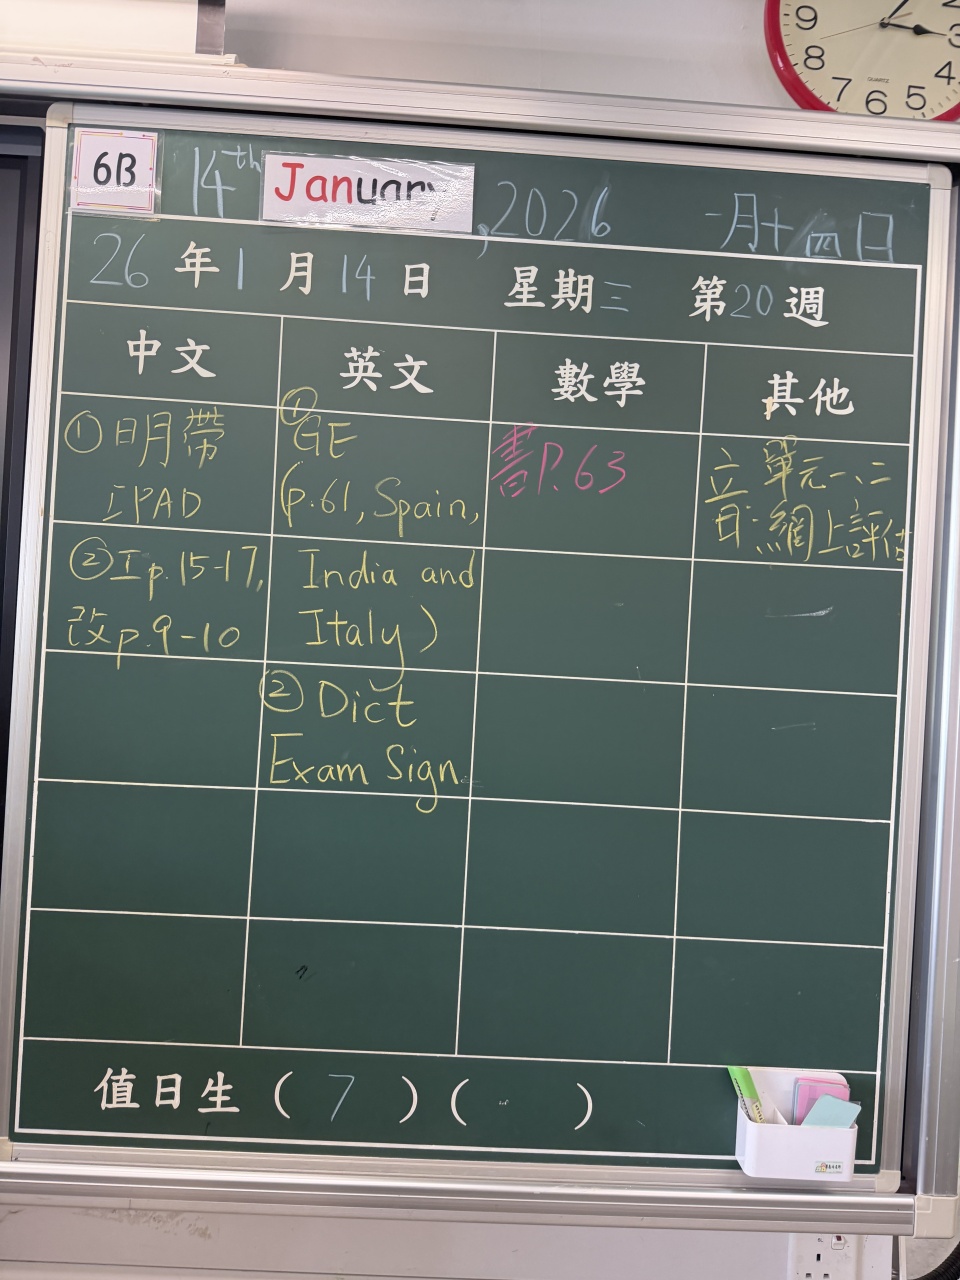 6B 14th January, 2026 一月十四日
26年1月14日 星期三 第20週
中文 英文 數學 其他
①日月帶
IPAD
②工p.15-17,
改p.9-10
① GE
(p.61, Spain,
India and
Italy)
② Dict
Exam Sign.
書P.63
音:單元一、二
網上評估
值日生 ( 7 ) ( )
9 8 7 6 5 4 3
QUARTZ